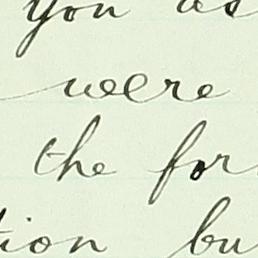 you as
were
the for
tion bu